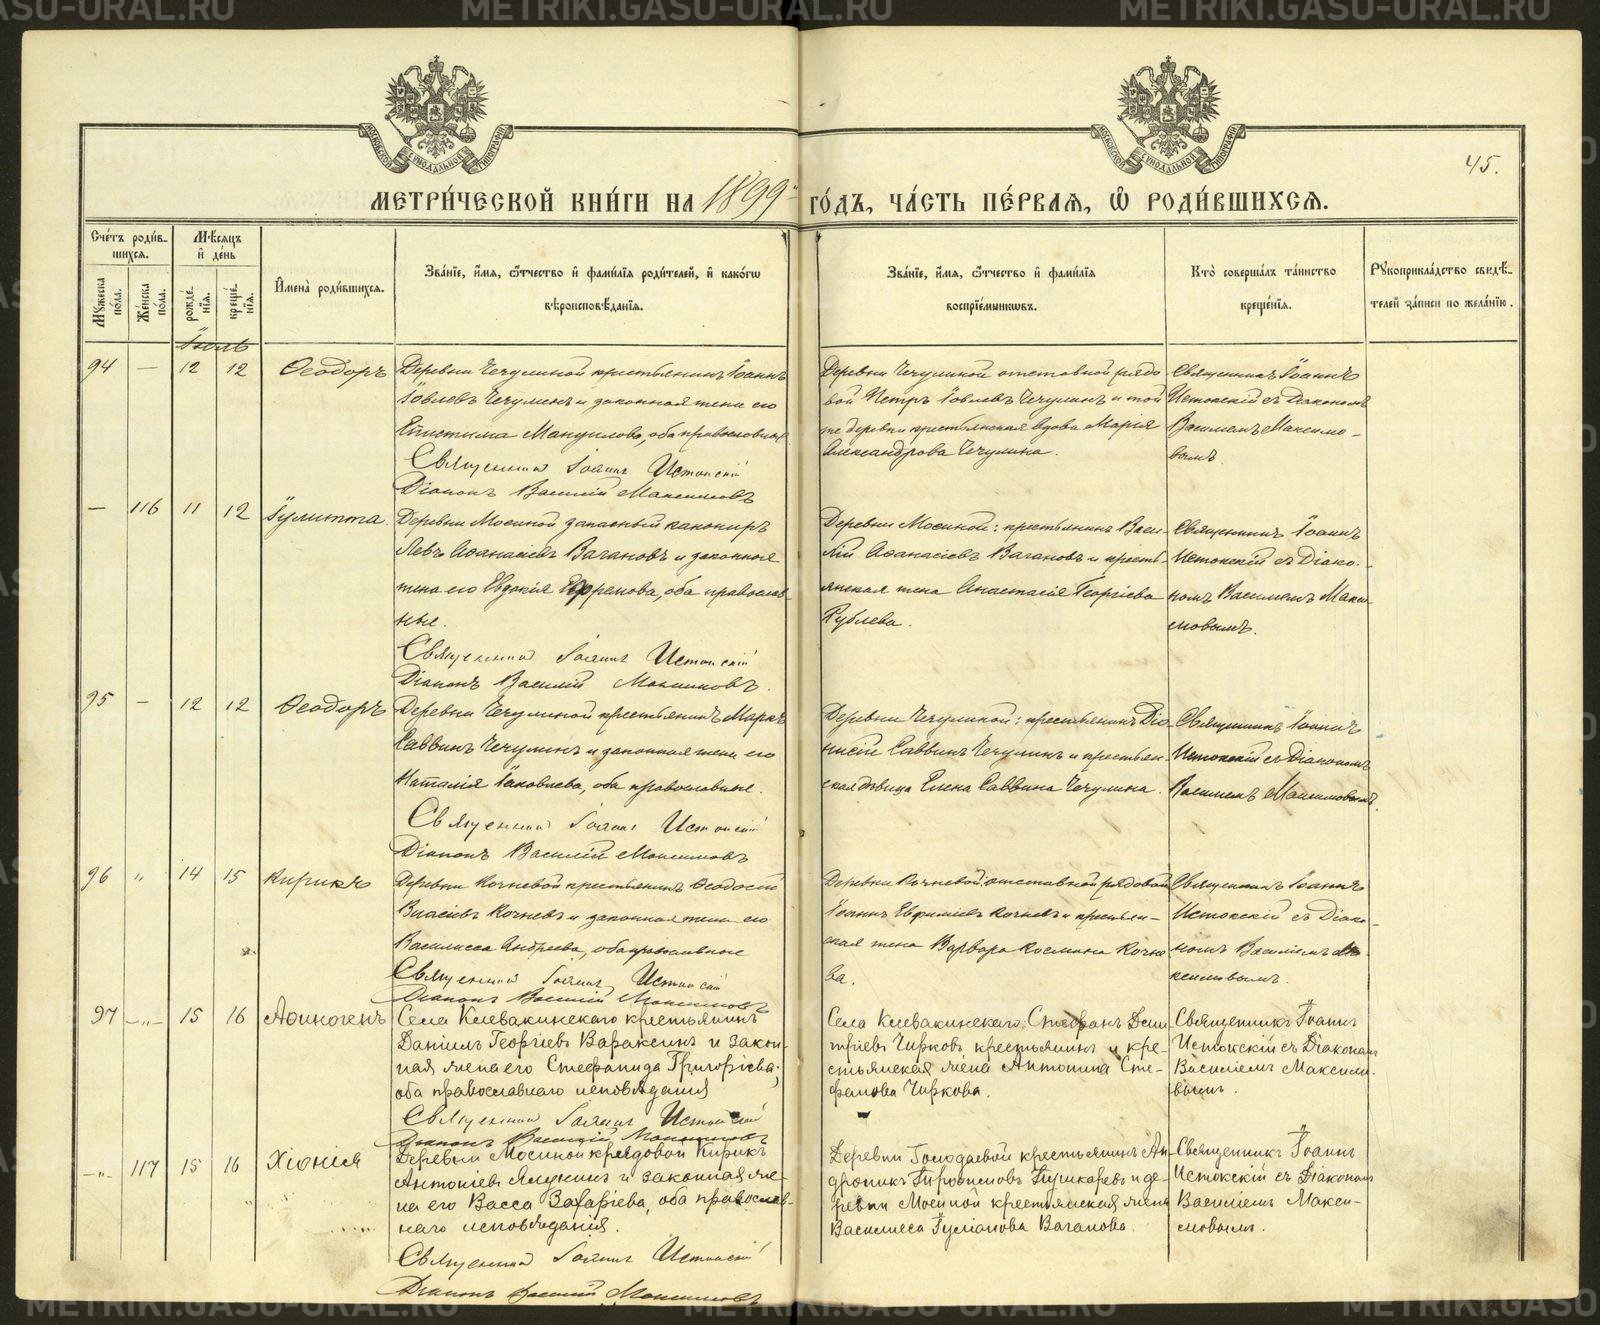 METRIKI.GASU-URAL.RU
45.
МЕТРИ́ЧЕСКОЙ КНИ́ГИ НА 1899 ГО́ДЪ, ЧА́СТЬ ПЕ́РВАЯ, Ѡ РОДИ́ВШИХСЯ.
Сче́тъ роди́вшихся.
Мꙋжеска по́ла.
Же́нска по́ла.
Мѣ́сяцъ и де́нь
рожде́нїя.
креще́нїя.
Имена̀ роди́вшихся.
Зва́нїе, и́мя, ѻ́тчество и фами́лїя роди́телей, и како́гѡ вѣроисповѣ́данїя.
Зва́нїе, и́мя, ѻ́тчество и фами́лїя воспрїе́мникѡвъ.
Кто̀ соверша́лъ та́инство креще́нїя.
Рꙋкоприкла́дство свидѣ́телей за́писи по жела́нїю.
Іюль
94 — 12 12 Ѳеодоръ
Деревни Чечулиной крестьянинъ Іоаннъ
Іовлевъ Чечулинъ и законная жена его
Епистима Мануилова, оба православные
Священникъ Іоаннъ Истокскій
Діаконъ Василій Максимовъ
Деревни Чечулиной отставной рядо-
вой Петръ Іовлевъ Чечулинъ и той
же деревни крестьянская вдова Марія
Александрова Чечулина.
Священникъ Іоаннъ
Истокскій съ Діакономъ
Василіемъ Максимо-
вымъ.
— 116 11 12 Іулитта.
Деревни Мосиной запасный канониръ
Левъ Аѳанасіевъ Вагановъ и законная
жена его Евдокія Ефремова, оба православ-
ные.
Священникъ Іоаннъ Истокскій
Діаконъ Василій Максимовъ.
Деревни Мосиной: крестьянинъ Васи-
лій Аѳанасіевъ Вагановъ и кресть-
янская жена Анастасія Георгіева
Рублева.
Священникъ Іоаннъ
Истокскій съ Діако-
номъ Василіемъ Макси-
мовымъ.
95 — 12 12 Ѳеодоръ
Деревни Чечулиной крестьянинъ Маркъ
Саввинъ Чечулинъ и законная жена его
Наталія Іаковлева, оба православные.
Священникъ Іоаннъ Истокскій
Діаконъ Василій Максимовъ
Деревни Чечулиной: крестьянинъ Діо-
нисій Саввинъ Чечулинъ и крестьян-
ская дѣвица Елена Саввина Чечулина.
Священникъ Іоаннъ
Истокскій съ Діакономъ
Василіемъ Максимовымъ.
96 " 14 15 Кирикъ
Деревни Кочневой крестьянинъ Ѳеодосій
Власіевъ Кочневъ и законная жена его
Василисса Андреева, оба православные
Священникъ Іоаннъ Истокскій
Діаконъ Василій Максимовъ
Деревни Кочневой: отставной рядовой
Іоаннъ Евфиміевъ Кочневъ и крестьян-
ская жена Варвара Космина Кочне-
ва.
Священникъ Іоаннъ
Истокскій съ Діако-
номъ Василіемъ Ма-
ксимовымъ.
97 —"— 15 16 Аѳиногенъ
Села Клевакинскаго крестьянинъ
Даніилъ Георгіевъ Вараксинъ и закон-
ная жена его Стефанида Григоріева,
оба православнаго исповѣданія
Священникъ Іоаннъ Истокскій
Діаконъ Василій Максимовъ
Села Клевакинскаго Стефанъ Дими-
тріевъ Чирковъ крестьянинъ и кре-
стьянская жена Антонина Сте-
фанова Чиркова.
Священникъ Іоаннъ
Истокскій съ Діакономъ
Василіемъ Максимо-
вымъ.
—"— 117 15 16 Хіонія
Деревни Мосиной рядовой Кирикъ
Антоніевъ и законная же-
на его Васса Захаріева, оба православ-
наго исповѣданія.
Священникъ Іоаннъ Истокскій
Діаконъ Василій Максимовъ
Деревни крестьянинъ Ан-
дроникъ Пушкаревъ и де-
ревни Мосиной крестьянская жена
Василисса Ваганова.
Священникъ Іоаннъ
Истокскій съ Діакономъ
Василіемъ Макси-
мовымъ.